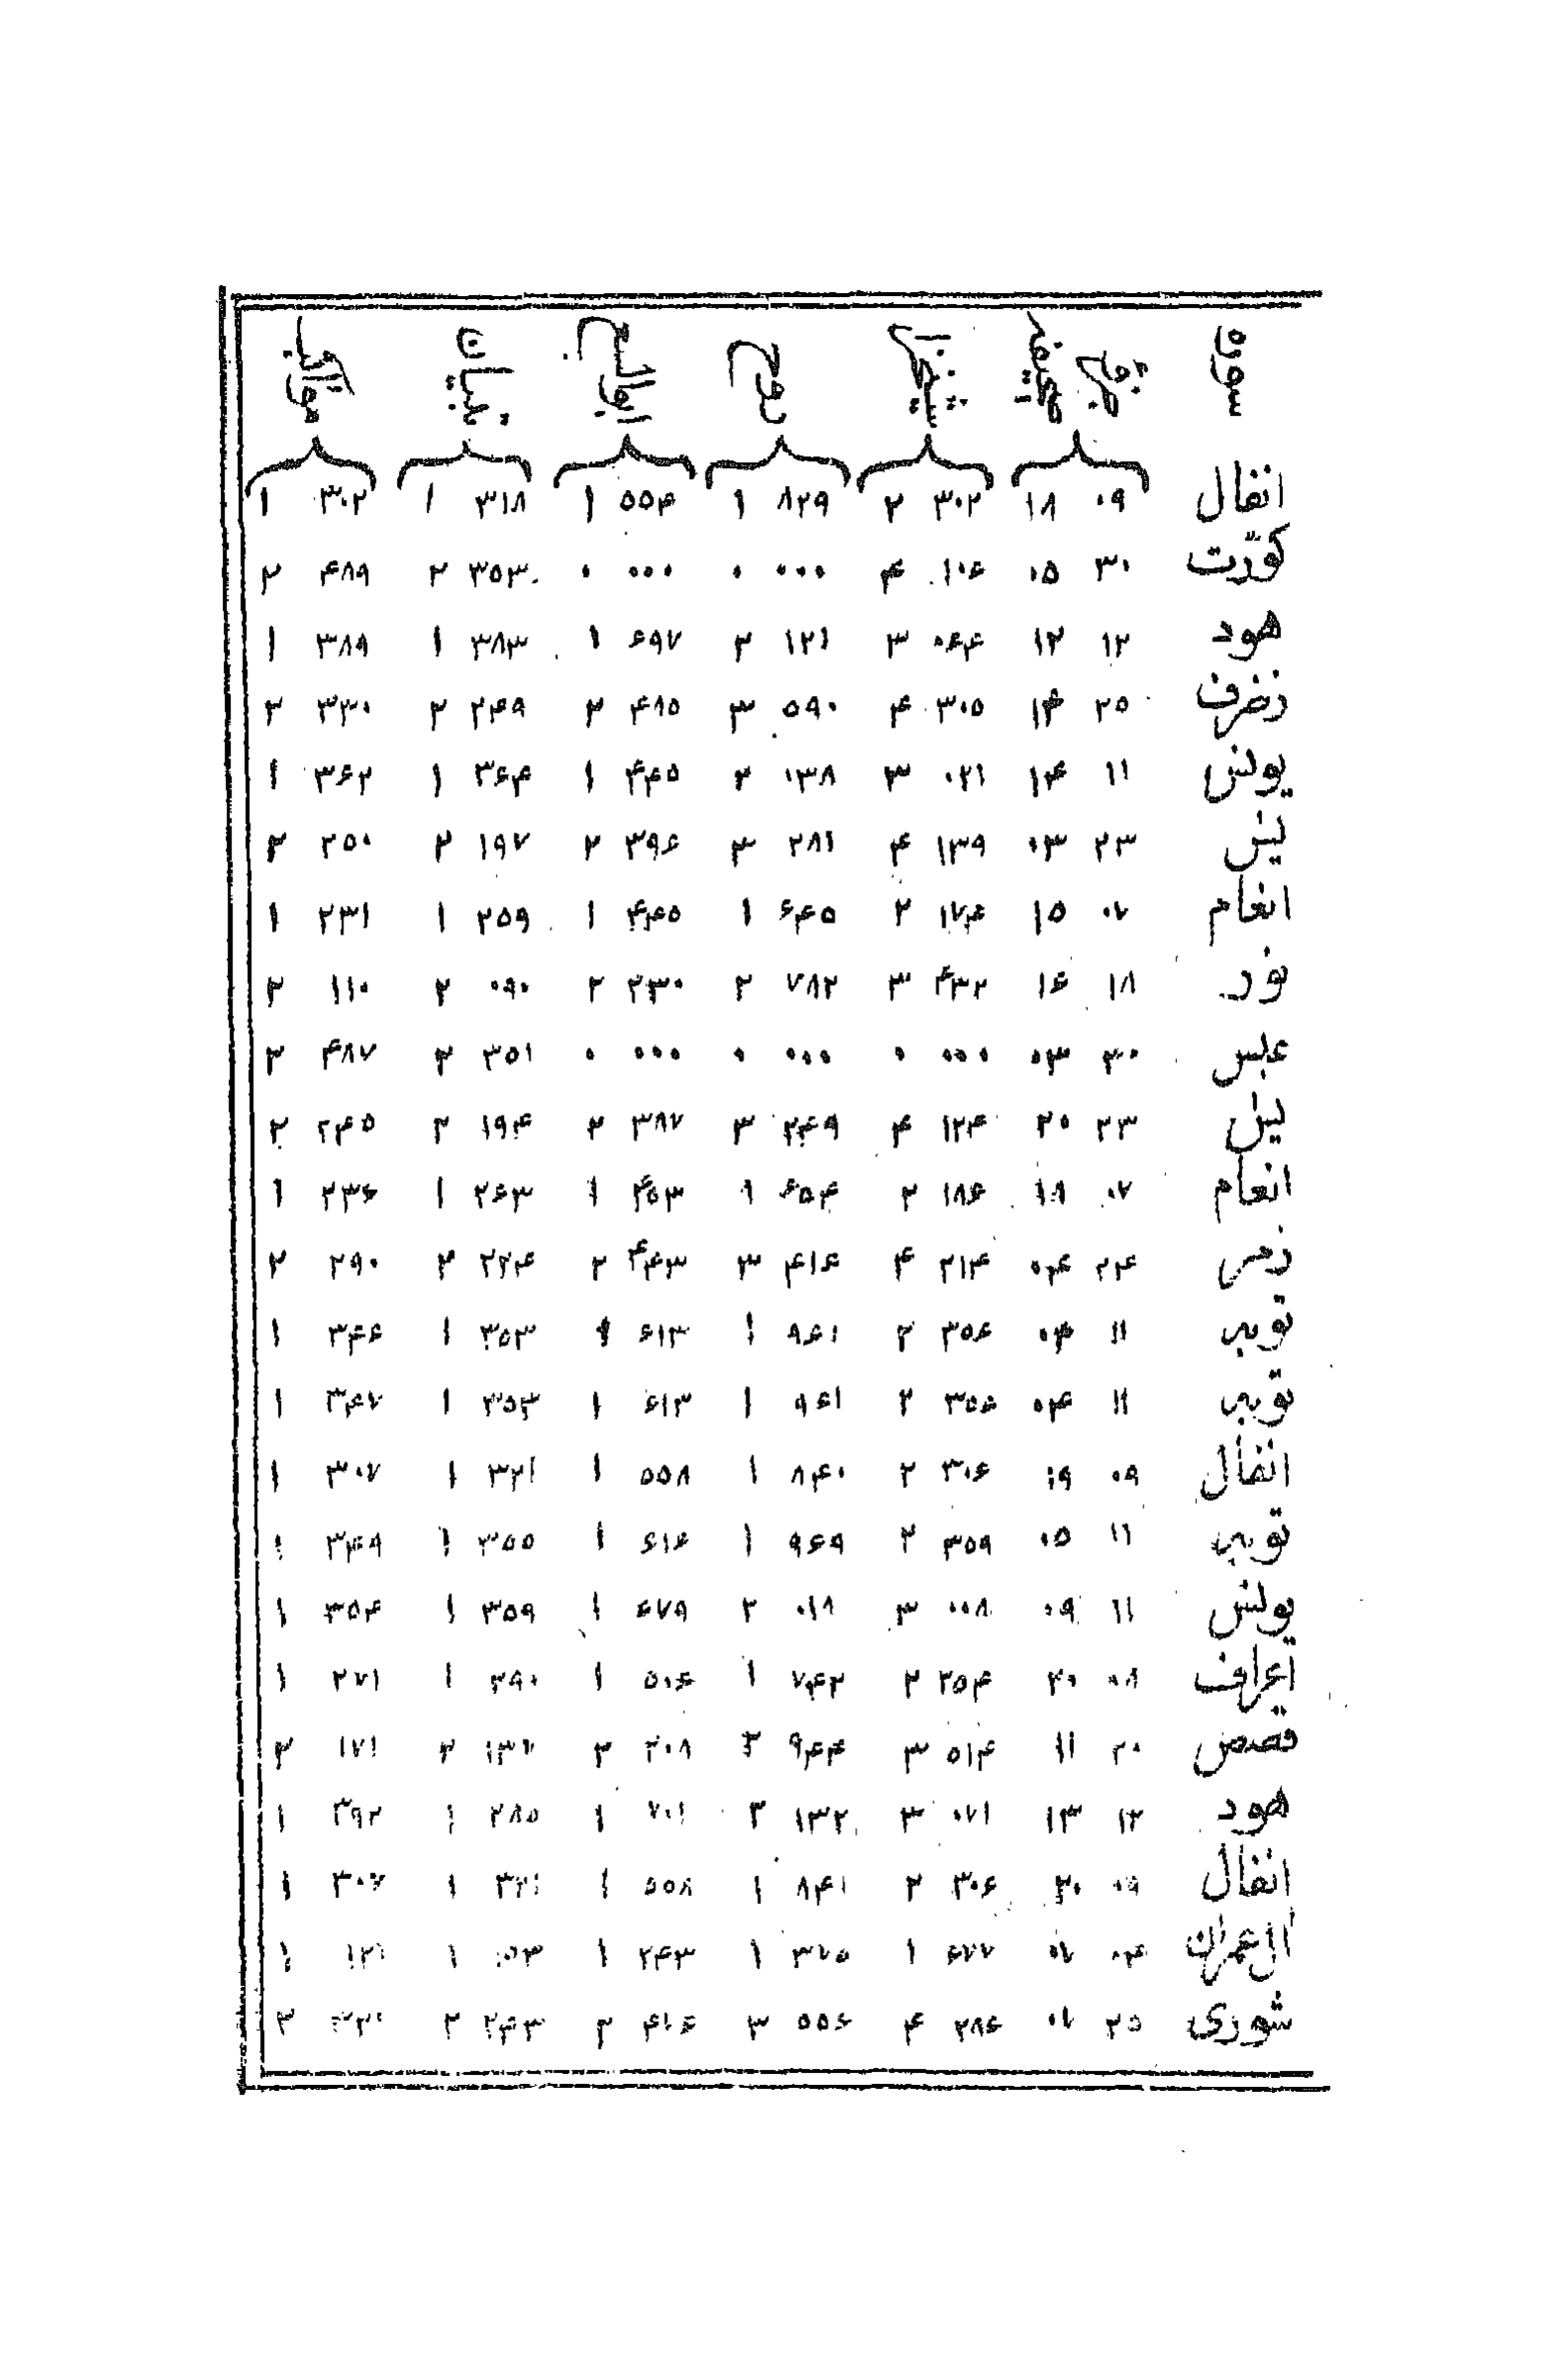 سوره جزو صحیفه روح تبیان مواکب
انفال ۰۹ ۱۸ ۳۰۲ ۲ ۸۲۹ ۱ ۵۵۴ ۱ ۳۱۸ ۱ ۳۰۲ ۱
کوّرت ۳۰ ۰۵ ۱۰۶ ۴ ۰۰۰ ۰ ۰۰۰ ۰ ۳۵۳ ۲ ۴۸۹ ۲
هود ۱۲ ۱۲ ۰۶۴ ۳ ۱۲۱ ۲ ۶۹۷ ۱ ۳۸۳ ۱ ۳۸۹ ۱
زخرف ۲۵ ۱۴ ۳۰۵ ۴ ۵۹۰ ۳ ۴۸۵ ۲ ۲۴۹ ۲ ۳۳۰ ۲
یونس ۱۱ ۱۴ ۰۲۱ ۳ ۰۳۸ ۲ ۴۴۵ ۱ ۳۶۴ ۱ ۳۶۲ ۱
یس ۲۳ ۰۳ ۱۳۹ ۴ ۲۸۱ ۳ ۳۹۶ ۲ ۱۹۷ ۲ ۲۵۰ ۲
انعام ۰۷ ۱۵ ۱۷۴ ۲ ۶۴۵ ۱ ۴۴۵ ۱ ۲۵۹ ۱ ۲۳۱ ۱
نور ۱۸ ۱۶ ۴۳۲ ۳ ۷۸۲ ۲ ۲۳۰ ۲ ۰۹۰ ۲ ۱۱۰ ۲
عبس ۳۰ ۰۳ ۰۰۰ ۰ ۰۰۰ ۰ ۰۰۰ ۰ ۳۵۱ ۲ ۴۸۷ ۲
یس ۲۳ ۲۰ ۱۲۴ ۴ ۲۴۹ ۳ ۳۸۷ ۲ ۱۹۴ ۲ ۲۴۵ ۲
انعام ۰۷ ۱۸ ۱۸۶ ۲ ۶۵۴ ۱ ۴۵۳ ۱ ۲۶۳ ۱ ۲۳۶ ۱
زمر ۲۴ ۰۴ ۲۱۴ ۴ ۴۱۶ ۳ ۴۴۳ ۲ ۲۲۴ ۲ ۲۹۰ ۲
توبه ۱۱ ۰۴ ۳۵۶ ۲ ۹۶۱ ۱ ۶۱۳ ۱ ۳۵۳ ۱ ۳۴۶ ۱
توبه ۱۱ ۰۴ ۳۵۶ ۲ ۹۶۱ ۱ ۶۱۳ ۱ ۳۵۳ ۱ ۳۴۷ ۱
انفال ۰۹ ۱۹ ۳۰۶ ۲ ۸۴۰ ۱ ۵۵۸ ۱ ۳۲۱ ۱ ۳۰۷ ۱
توبه ۱۱ ۰۵ ۳۵۹ ۲ ۹۶۹ ۱ ۶۱۶ ۱ ۳۵۵ ۱ ۳۴۹ ۱
یونس ۱۱ ۰۹ ۰۰۸ ۳ ۰۱۸ ۲ ۶۷۹ ۱ ۳۵۹ ۱ ۳۵۴ ۱
اعراف ۰۸ ۲۰ ۲۵۴ ۲ ۷۴۲ ۱ ۵۰۶ ۱ ۲۹۰ ۱ ۲۷۱ ۱
قصص ۲۰ ۱۱ ۵۱۴ ۳ ۹۴۴ ۲ ۳۰۸ ۲ ۱۳۲ ۲ ۱۷۱ ۲
هود ۱۲ ۱۳ ۰۷۱ ۳ ۱۳۲ ۲ ۷۰۱ ۱ ۲۸۵ ۱ ۳۹۲ ۱
انفال ۰۹ ۲۰ ۳۰۶ ۲ ۸۴۱ ۱ ۵۵۸ ۱ ۳۲۱ ۱ ۳۰۷ ۱
ال عمران ۰۴ ۰۷ ۶۷۷ ۱ ۳۷۵ ۱ ۲۴۳ ۱ ۱ ۱۲۱ ۱
شوری ۲۵ ۲۸۶ ۴ ۵۵۶ ۳ ۴۷۶ ۲ ۲۴۳ ۲ ۲